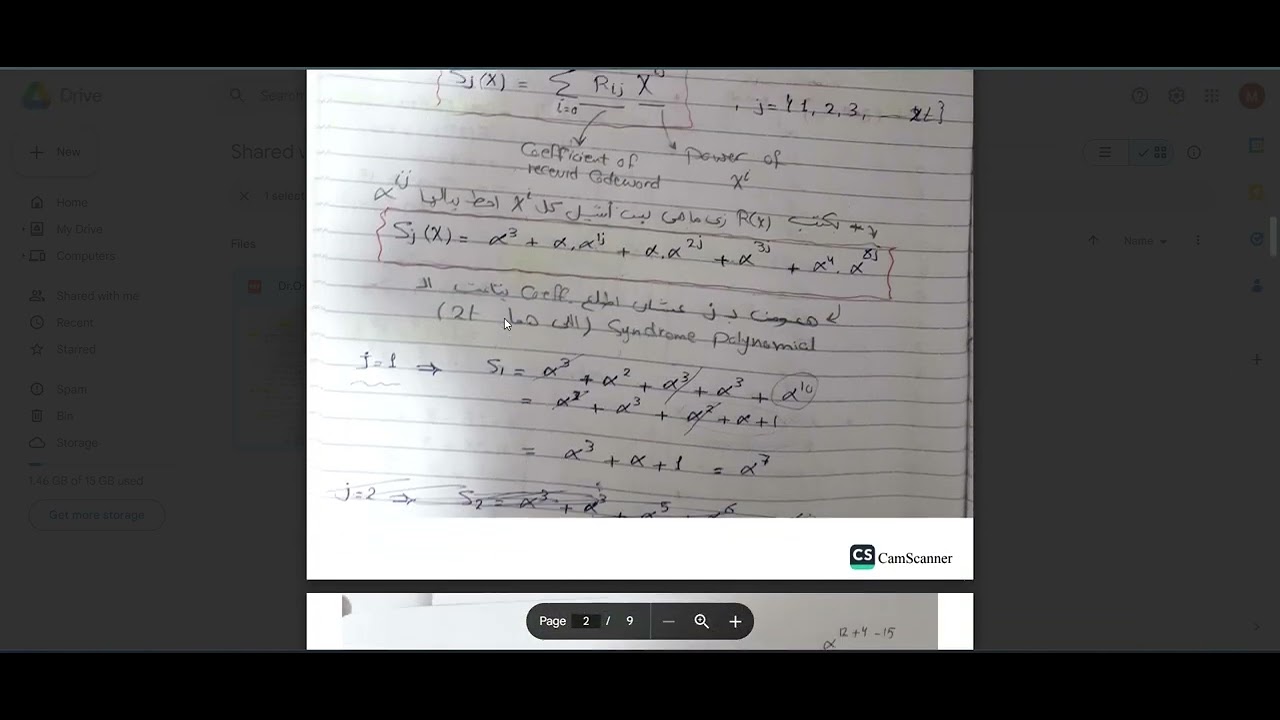 Drive
Search
New
Shared w
1 select
Home
My Drive
Computers
Shared with me
Recent
Starred
Spam
Bin
Storage
1.46 GB of 15 GB used
Get more storage
Files
Name
M
Sj(X) = Σ i=0 Rij X , j={1, 2, 3, ... 2t}
Coefficient of
received Codeword
Power of
Xⁱ
نكتب R(X) زي ما هي بس أشيل كل Xⁱ احط بدالها αⁱʲ
Sj(X) = α³ + α.α¹ʲ + α.α²ʲ + α³ʲ + α⁴.α
هعوض بـ j عشان اطلع Coeff. بتاعت الـ
Syndrome Polynomial (اللي هما 2t)
j=1 ⇒ S₁ = α³ + α² + α³ + α³ + α¹⁰
+ α³ + α² + α + 1
= α³ + α + 1 = α⁷
j=2 ⇒ S₂ = α³ + α³ + α⁵
CS CamScanner
Page 2 / 9
α¹²⁺⁴⁻¹⁵